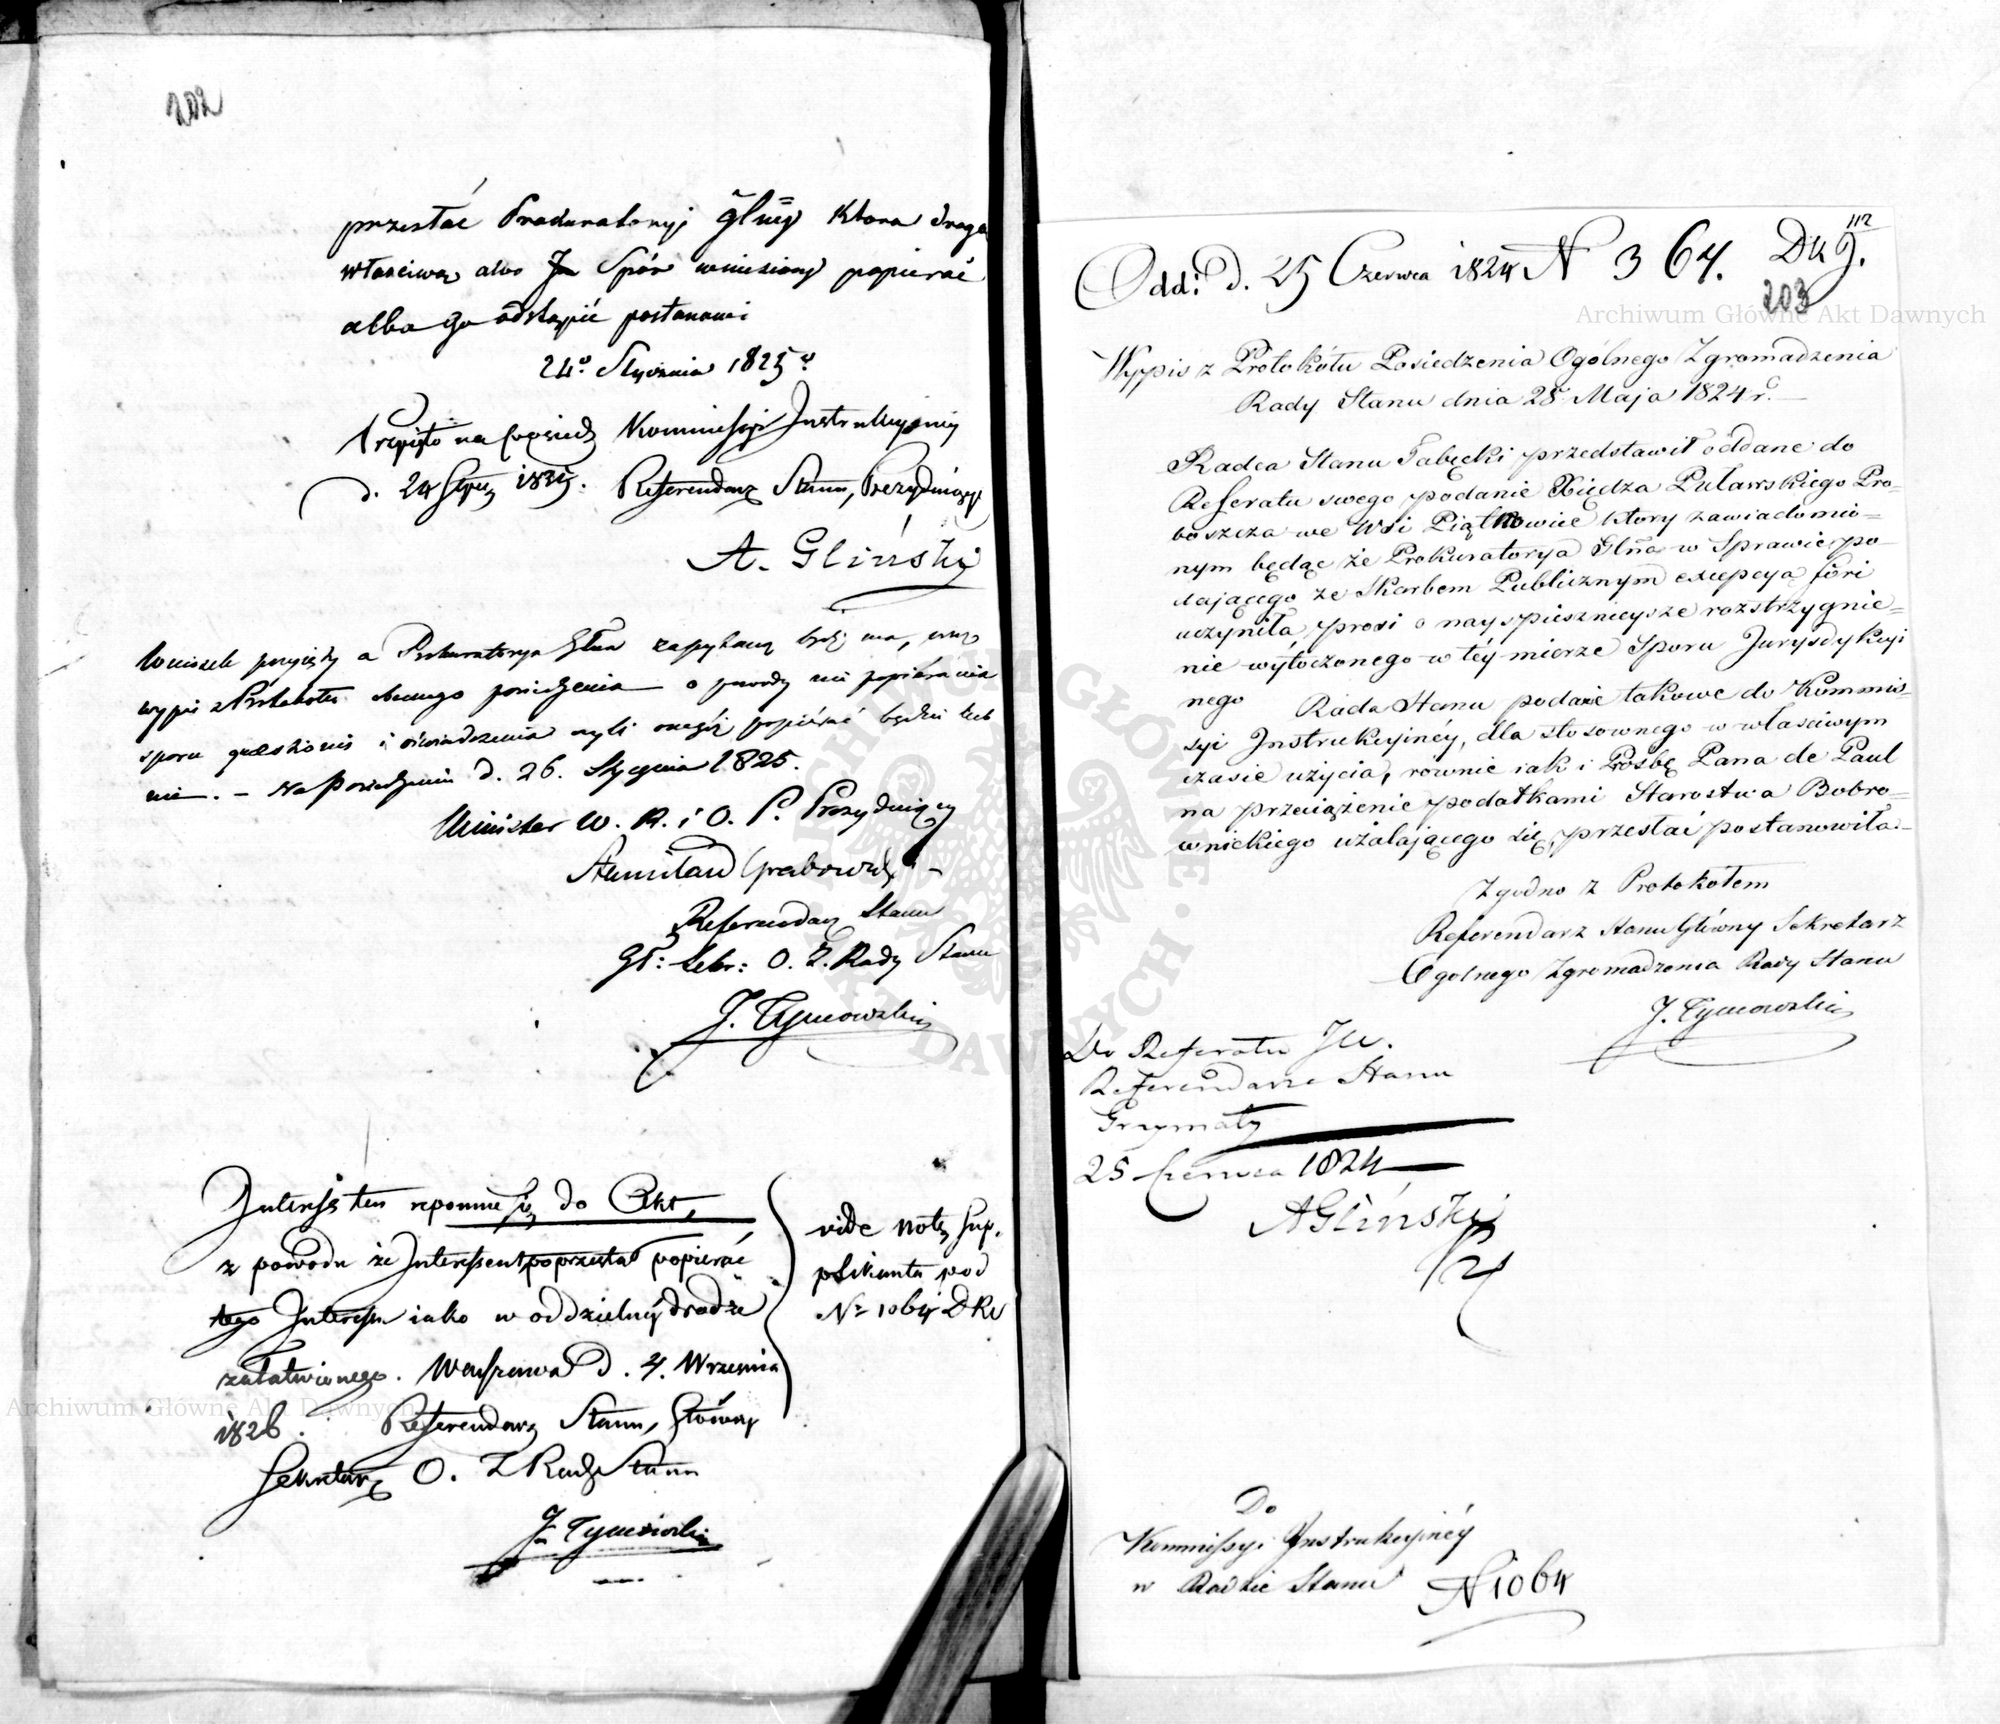 202
przesłać Prokuratoryi Głney która drogą
właściwą albo Spór wniesiony popierać
albo go odstąpić postanowi
24o Stycznia 1825 r
Przyięto na posiedz Kommissyi Instrukcyiney
d. 24 Stycz 1825. Referendarz Stanu, Prezyduiący
A. Gliński
Wniosek przyięty a Prokuratorya Głna zapytaną być ma, przez
wypis z Protokołu obecnego posiedzenia o powody nie popierania
sporu quaestionis i oświadczenia czyli onegoż popierać będzie lub
nie. – Na Posiedzeniu d. 26. Stycznia 1825.
Minister W. R. i O. P. Prezyduiący
Stanisław Grabowski –
Referendarz Stanu
Gł: Sekr: O. Z. Rady Stanu
J. Tymowski
Interess ten reponuie się do Akt,
z powodu że Interessent poprzestał popierać
tego Interessu iako w oddzielnéy drodze
załatwionego. Warszawa d. 4. Września
1826. Referendarz Stanu, Główny
Sekretarz O. Z Rady Stanu
J. Tymowski
vide notę sup-
plikanta pod
No 1064 DRu
112
Odd: d. 25 Czerwca 1824 N 364. Du J.
203
Archiwum Główne Akt Dawnych
Wypis z Protokółu Posiedzenia Ogólnego Zgromadzenia
Rady Stanu dnia 28 Maja 1824 r.
Radca Stanu Tabęcki przedstawił oddane do
Referatu swego podanie Xiędza Puławskiego Pro-
boszcza we Wsi Piątkowice który zawiadomio=
nym będąc że Prokuratorya Głna w Sprawie po-
dającego ze Skarbem Publicznym excepcyą fori
uczyniła, prosi o nayspiesznieysze rozstrzygnie=
nie wytoczonego w téy mierze Sporu Jurysdykcyi
nego Rada Stanu podanie takowe do Kommis-
syi Instrukcyinéy, dla stosownego w właściwym
czasie użycia, rownie iak i Prosbę Pana de Paul
na przeciążenie podatkami Starostwa Bobro-
wnickiego użalającego się, przesłać postanowiła.
Zgodno z Protokołem
Referendarz Stanu Główny Sekretarz
Ogolnego Zgromadzenia Rady Stanu
J. Tymowski
Do Referatu JW.
Referendarza Stanu
Grzymały
25 Czerwca 1824
A Gliński
Do
Kommissyi Instrukcyinéy
w Radzie Stanu N 1064
Archiwum Główne Akt Dawnych
ARCHIWUM GŁÓWNE AKT DAWNYCH